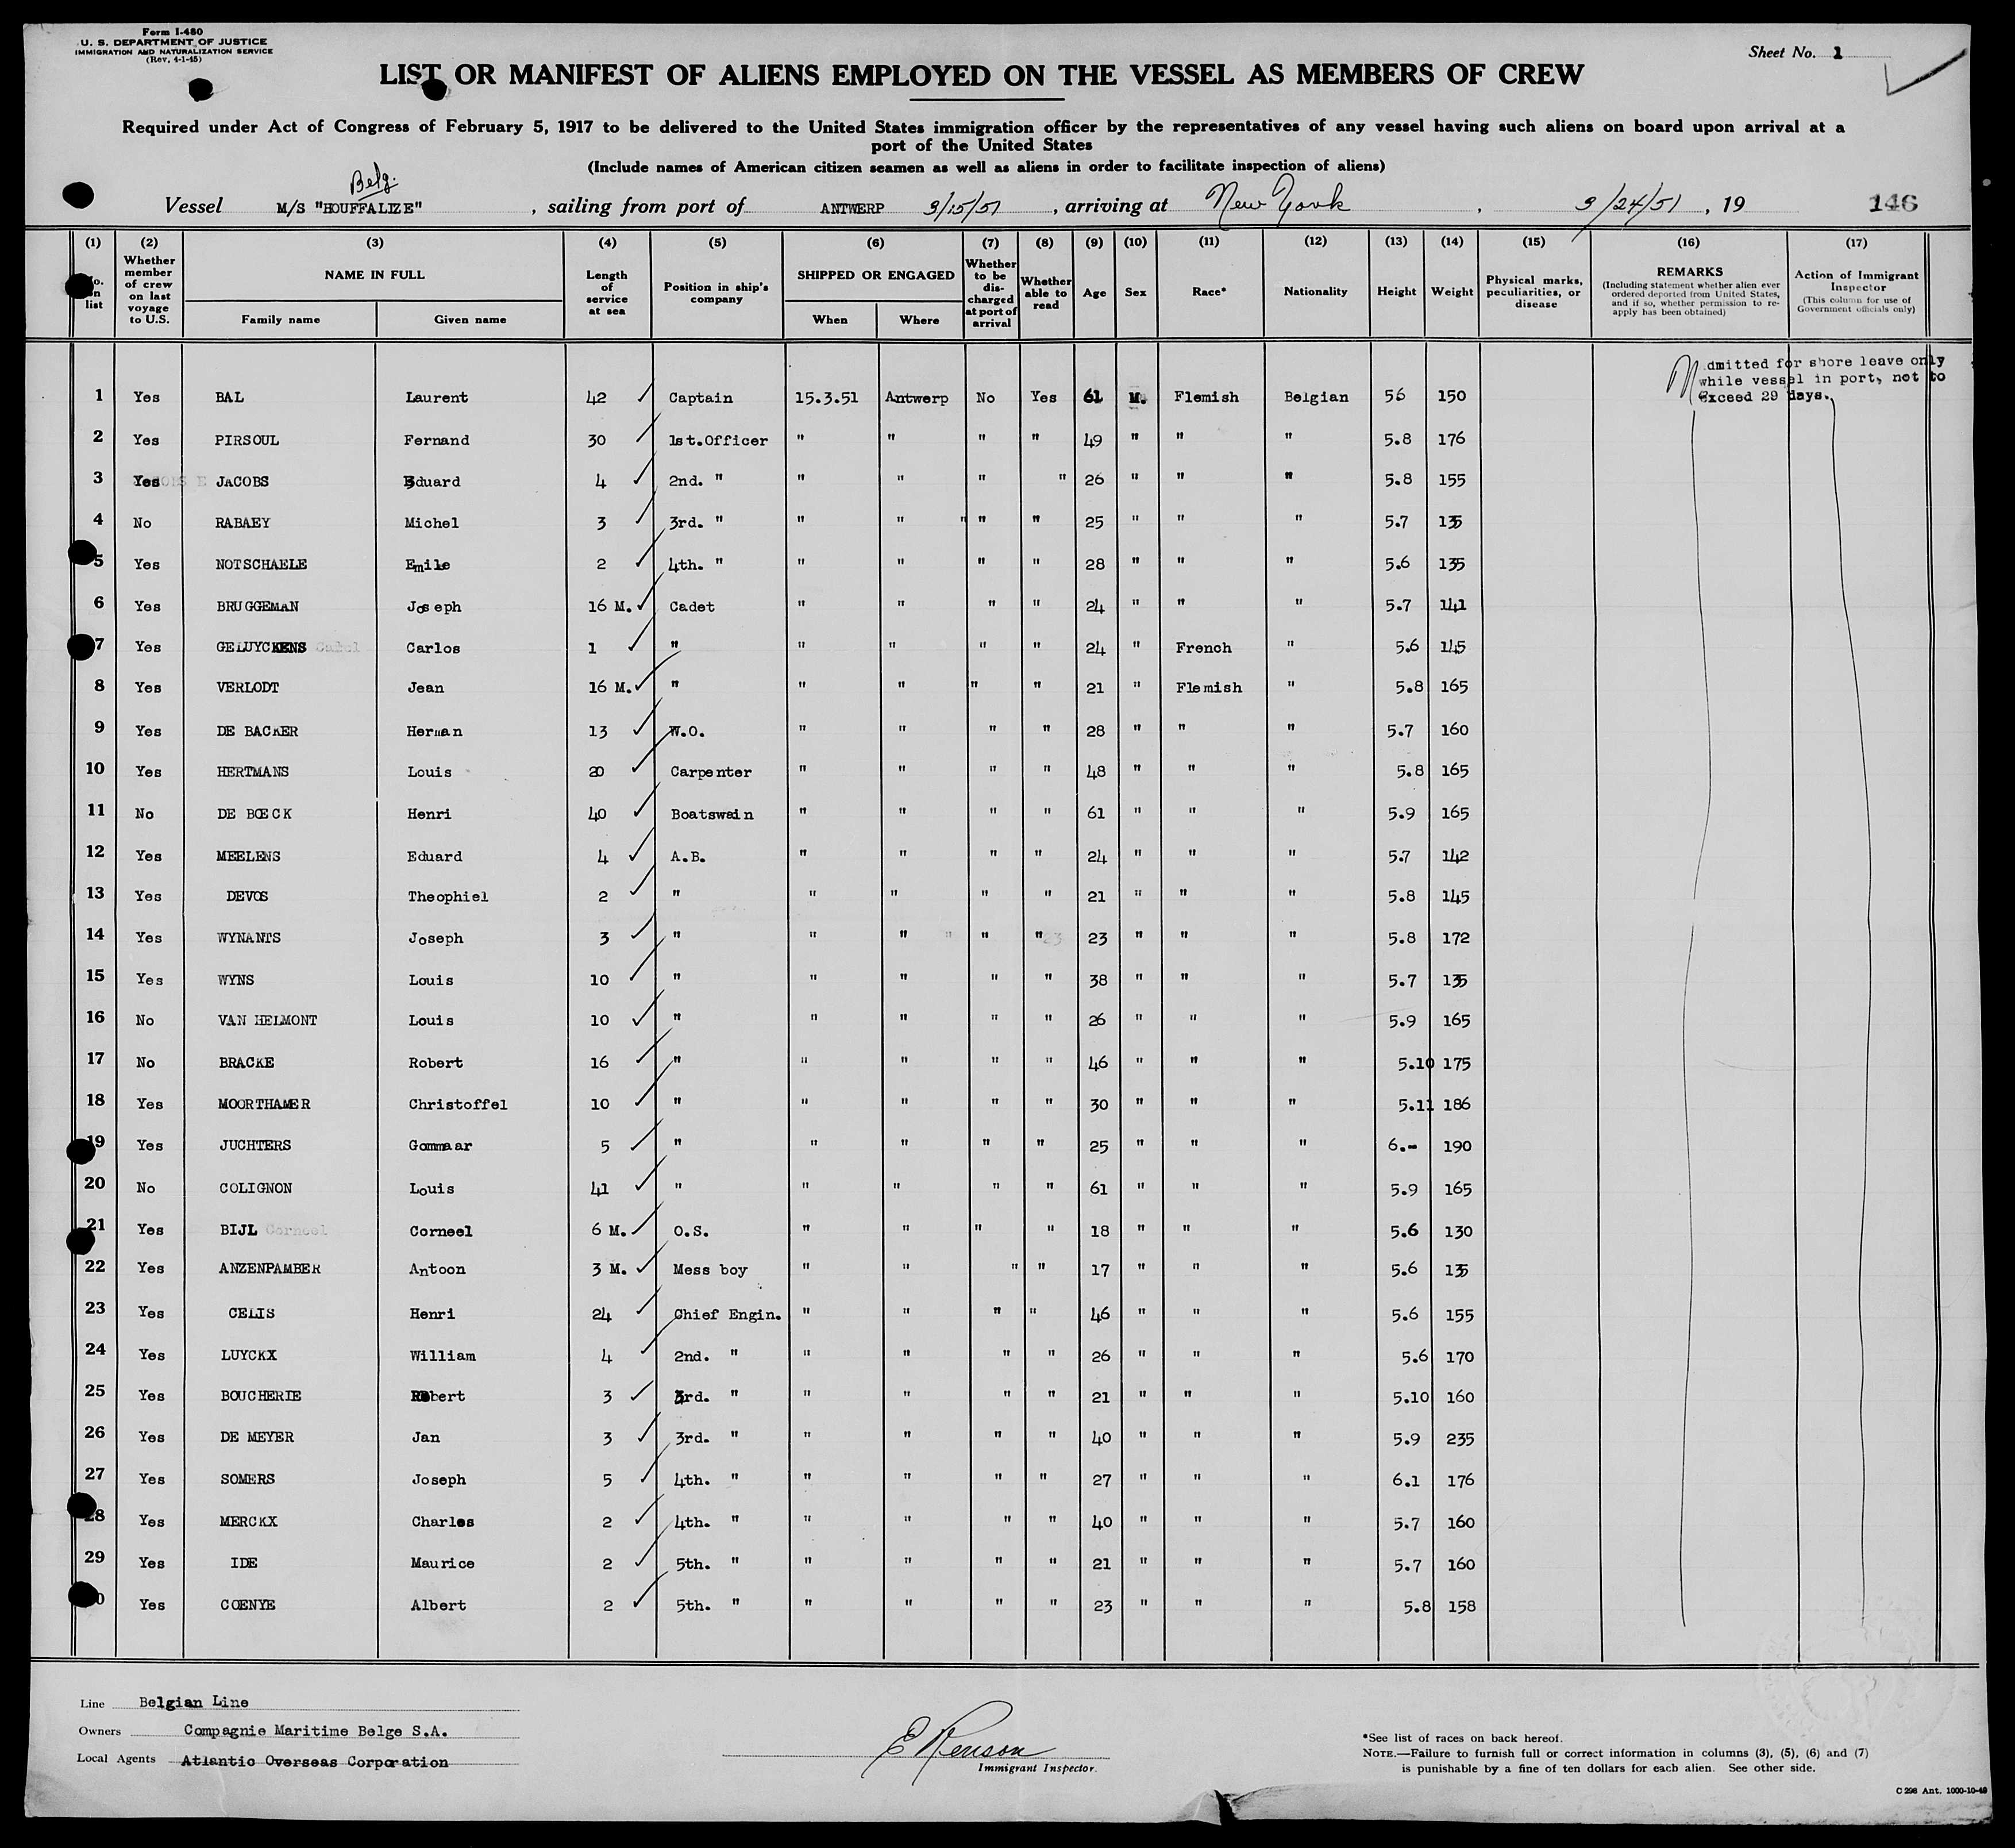 Form I-480
U. S. DEPARTMENT OF JUSTICE
IMMIGRATION AND NATURALIZATION SERVICE
(Rev. 4-1-45)
Sheet No. 1
LIST OR MANIFEST OF ALIENS EMPLOYED ON THE VESSEL AS MEMBERS OF CREW
Required under Act of Congress of February 5, 1917 to be delivered to the United States immigration officer by the representatives of any vessel having such aliens on board upon arrival at a
port of the United States
(Include names of American citizen seamen as well as aliens in order to facilitate inspection of aliens)
Belg.
Vessel M/S "HOUFFALIZE" , sailing from port of ANTWERP 3/15/51 , arriving at New York , 3/24/51 , 19 146
(1) (2) (3) (4) (5) (6) (7) (8) (9) (10) (11) (12) (13) (14) (15) (16) (17)
No. on list
Whether member of crew on last voyage to U.S.
NAME IN FULL
Family name Given name
Length of service at sea
Position in ship's company
SHIPPED OR ENGAGED
When Where
Whether to be discharged at port of arrival
Whether able to read
Age Sex Race* Nationality Height Weight
Physical marks, peculiarities, or disease
REMARKS
(Including statement whether alien ever ordered deported from United States, and if so, whether permission to re-apply has been obtained)
Action of Immigrant Inspector
(This column for use of Government officials only)
dmitted for shore leave only
while vessel in port, not to
exceed 29 days.
1 Yes BAL Laurent 42 Captain 15.3.51 Antwerp No Yes 61 M. Flemish Belgian 56 150
2 Yes PIRSOUL Fernand 30 1st.Officer " " " " 49 " " " 5.8 176
3 Yes JACOBS Eduard 4 2nd. " " " " " 26 " " " 5.8 155
4 No RABAEY Michel 3 3rd. " " " " " " 25 " " " 5.7 135
5 Yes NOTSCHAELE Emile 2 4th. " " " " " 28 " " " 5.6 135
6 Yes BRUGGEMAN Joseph 16 M. Cadet " " " " 24 " " " 5.7 141
7 Yes GELUYCKENS Carlos 1 " " " " " 24 " French " 5.6 145
8 Yes VERLODT Jean 16 M. " " " " " 21 " Flemish " 5.8 165
9 Yes DE BACKER Herman 13 W.O. " " " " 28 " " " 5.7 160
10 Yes HERTMANS Louis 20 Carpenter " " " " 48 " " " 5.8 165
11 No DE BŒCK Henri 40 Boatswain " " " " 61 " " " 5.9 165
12 Yes MEELENS Eduard 4 A.B. " " " " 24 " " " 5.7 142
13 Yes DEVOS Theophiel 2 " " " " " 21 " " " 5.8 145
14 Yes WYNANTS Joseph 3 " " " " " " 23 " " " 5.8 172
15 Yes WYNS Louis 10 " " " " " 38 " " " 5.7 135
16 No VAN HELMONT Louis 10 " " " " " 26 " " " 5.9 165
17 No BRACKE Robert 16 " " " " " 46 " " " 5.10 175
18 Yes MOORTHAMER Christoffel 10 " " " " " 30 " " " 5.11 186
19 Yes JUCHTERS Gommaar 5 " " " " " 25 " " " 6.- 190
20 No COLIGNON Louis 41 " " " " " 61 " " " 5.9 165
21 Yes BIJL Corneel 6 M. O.S. " " " " 18 " " " 5.6 130
22 Yes ANZENPAMBER Antoon 3 M. Mess boy " " " " 17 " " " 5.6 135
23 Yes CELIS Henri 24 Chief Engin. " " " " 46 " " " 5.6 155
24 Yes LUYCKX William 4 2nd. " " " " " 26 " " " 5.6 170
25 Yes BOUCHERIE Robert 3 3rd. " " " " " 21 " " " 5.10 160
26 Yes DE MEYER Jan 3 3rd. " " " " " 40 " " " 5.9 235
27 Yes SOMERS Joseph 5 4th. " " " " " 27 " " " 6.1 176
28 Yes MERCKX Charles 2 4th. " " " " " 40 " " " 5.7 160
29 Yes IDE Maurice 2 5th. " " " " " 21 " " " 5.7 160
30 Yes CŒNYE Albert 2 5th. " " " " " 23 " " " 5.8 158
Line Belgian Line
Owners Compagnie Maritime Belge S.A.
Local Agents Atlantic Overseas Corporation
E Renson
Immigrant Inspector.
*See list of races on back hereof.
NOTE.—Failure to furnish full or correct information in columns (3), (5), (6) and (7)
is punishable by a fine of ten dollars for each alien. See other side.
C 298 Ant. 1000-10-49